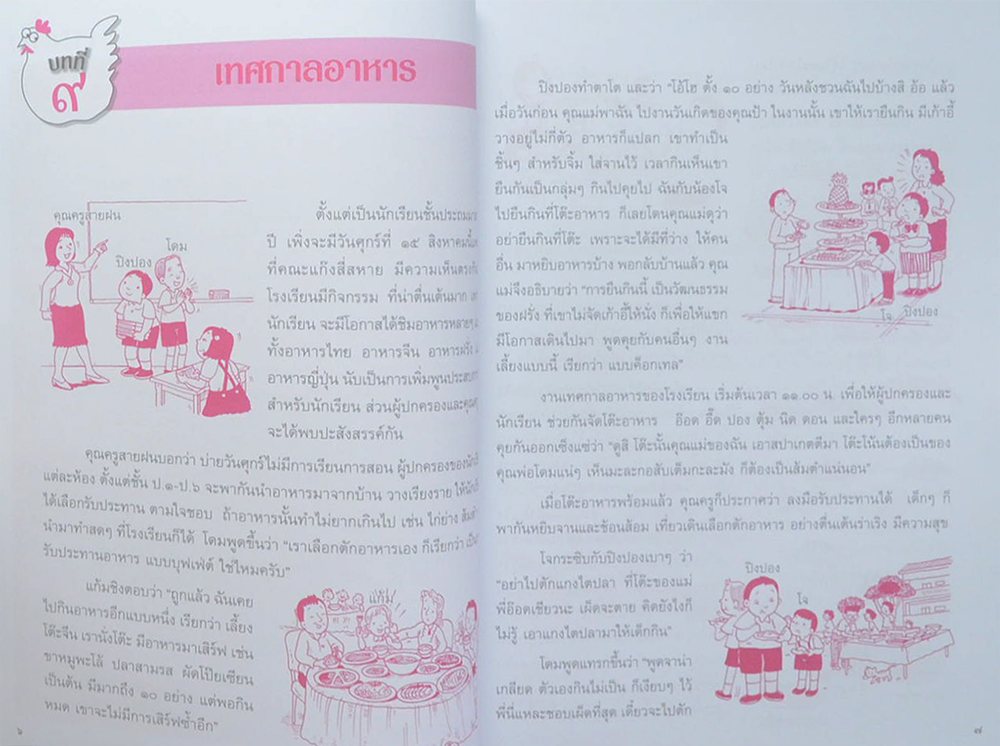 บทที่
๙
เทศกาลอาหาร
คุณครูสายฝน
ปิงปอง
โดม
ตั้งแต่เป็นนักเรียนชั้นประถมมา
ปี เพิ่งจะมีวันศุกร์ที่ ๑๕ สิงหาคมนี้
ที่คณะแก๊งสี่สหาย มีความเห็นตรงกัน
โรงเรียนมีกิจกรรม ที่น่าตื่นเต้นมาก
นักเรียน จะมีโอกาสได้ชิมอาหารหลายๆ
ทั้งอาหารไทย อาหารจีน อาหารฝรั่ง
อาหารญี่ปุ่น นับเป็นการเพิ่มพูนประสบการ
สำหรับนักเรียน ส่วนผู้ปกครองและคุณครู
จะได้พบปะสังสรรค์กัน
คุณครูสายฝนบอกว่า บ่ายวันศุกร์ไม่มีการเรียนการสอน ผู้ปกครองของนักเรีย
แต่ละห้อง ตั้งแต่ชั้น ป.๑-ป.๖ จะพากันนำอาหารมาจากบ้าน วางเรียงราย ให้นักเรี
ได้เลือกรับประทาน ตามใจชอบ ถ้าอาหารนั้นทำไม่ยากเกินไป เช่น ไก่ย่าง ส้มตำ
นำมาทำสดๆ ที่โรงเรียนก็ได้ โดมพูดขึ้นว่า "เราเลือกตักอาหารเอง ก็เรียกว่า เป็น
รับประทานอาหาร แบบบุฟเฟ่ต์ ใช่ไหมครับ"
แก้มชิงตอบว่า "ถูกแล้ว ฉันเคย
ไปกินอาหารอีกแบบหนึ่ง เรียกว่า เลี้ยง
โต๊ะจีน เรานั่งโต๊ะ มีอาหารมาเสิร์ฟ เช่น
ขาหมูพะโล้ ปลาสามรส ผัดโป๊ยเซียน
เป็นต้น มีมากถึง ๑๐ อย่าง แต่พอกิน
หมด เขาจะไม่มีการเสิร์ฟซ้ำอีก"
แก้ม
๖
ปิงปองทำตาโต และว่า "โอ้โฮ ตั้ง ๑๐ อย่าง วันหลังชวนฉันไปบ้างสิ อ้อ แล้ว
เมื่อวันก่อน คุณแม่พาฉัน ไปงานวันเกิดของคุณป้า ในงานนั้น เขาให้เรายืนกิน มีเก้าอี้
วางอยู่ไม่กี่ตัว อาหารก็แปลก เขาทำเป็น
ชิ้นๆ สำหรับจิ้ม ใส่จานไว้ เวลากินเห็นเขา
ยืนกันเป็นกลุ่มๆ กินไปคุยไป ฉันกับน้องโจ
ไปยืนกินที่โต๊ะอาหาร ก็เลยโดนคุณแม่ดุว่า
อย่ายืนกินที่โต๊ะ เพราะจะได้มีที่ว่าง ให้คน
อื่น มาหยิบอาหารบ้าง พอกลับบ้านแล้ว คุณ
แม่จึงอธิบายว่า "การยืนกินนี้ เป็นวัฒนธรรม
ของฝรั่ง ที่เขาไม่จัดเก้าอี้ให้นั่ง ก็เพื่อให้แขก
มีโอกาสเดินไปมา พูดคุยกับคนอื่นๆ งาน
เลี้ยงแบบนี้ เรียกว่า แบบค็อกเทล"
โจ
ปิงปอง
งานเทศกาลอาหารของโรงเรียน เริ่มต้นเวลา ๑๑.๐๐ น. เพื่อให้ผู้ปกครองและ
นักเรียน ช่วยกันจัดโต๊ะอาหาร อ๊อด อี๊ด ปอง ตุ้ม นิด ดอน และใครๆ อีกหลายคน
คุยกันออกเซ็งแซ่ว่า "ดูสิ โต๊ะนั้นคุณแม่ของฉัน เอาสปาเกตตีมา โต๊ะโน้นต้องเป็นของ
คุณพ่อโดมแน่ๆ เห็นมะละกอสับเต็มกะละมัง ก็ต้องเป็นส้มตำแน่นอน"
เมื่อโต๊ะอาหารพร้อมแล้ว คุณครูก็ประกาศว่า ลงมือรับประทานได้ เด็กๆ ก็
พากันหยิบจานและช้อนส้อม เที่ยวเดินเลือกตักอาหาร อย่างตื่นเต้นร่าเริง มีความสุข
โจกระซิบกับปิงปองเบาๆ ว่า
"อย่าไปตักแกงไตปลา ที่โต๊ะของแม่
พี่อ๊อดเชียวนะ เผ็ดจะตาย คิดยังไงก็
ไม่รู้ เอาแกงไตปลามาให้เด็กกิน"
โดมพูดแทรกขึ้นว่า "พูดจาน่า
เกลียด ตัวเองกินไม่เป็น ก็เงียบๆ ไว้
พี่นี่แหละชอบเผ็ดที่สุด เดี๋ยวจะไปตัก
ปิงปอง
โจ
๗